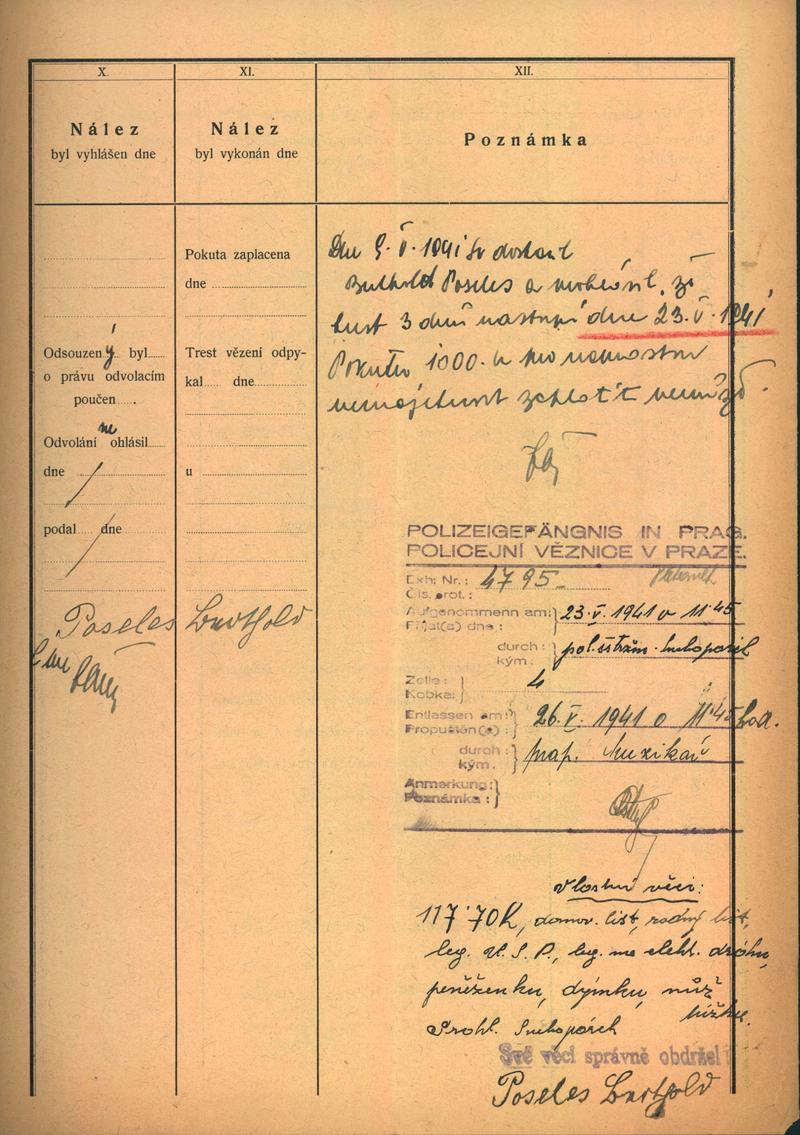 X.
Nález
byl vyhlášen dne
Odsouzený byl
o právu odvolacím
poučen
Odvolání neohlásil
dne /
podal dne /
Poseles Berthold
XI.
Nález
byl vykonán dne
Pokuta zaplacena
dne
Trest vězení odpy-
kal dne
u
XII.
Poznámka
Dne 9. V. 1941 se dostavil
Berthold Poseles a prohlásil, že
trest 3 dnů nastoupí dne 23. V. 1941
Pokutu 1000.- K pro
nemajetnost zaplatit nemůže.
POLIZEIGEFÄNGNIS IN PRAG.
POLICEJNÍ VĚZNICE V PRAZE.
Exh. Nr.: 4795
Čís. prot.:
Aufgenommenn am: 23. V. 1941 o 11'45
Přijat(a) dne:
durch: pol. strážm.
kým:
Zelle: 4
Kobka:
Entlassen am: 26. V. 1941 o 11'45 hod.
Propuštěn(a):
durch: prap. Muzikář
kým.
Anmerkung:
Poznámka:
vlastní věci:
117'70 K, domov. list, rodný list,
leg. U. S. P., leg. na elekt. dráhu,
peněženku, dýmku, nůž
Prohl.
Své věci správně obdržel
Poseles Berthold